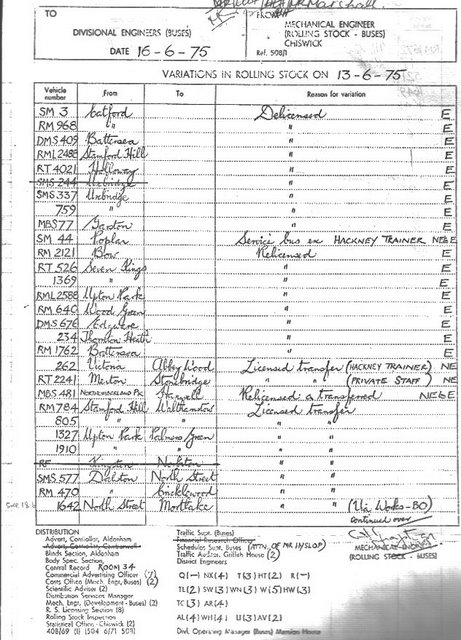 TO
FROM
DIVISIONAL ENGINEERS (BUSES)
MECHANICAL ENGINEER
(ROLLING STOCK - BUSES)
CHISWICK
DATE 16-6-75
Ref. 508/1
VARIATIONS IN ROLLING STOCK ON 13-6-75
Vehicle number From To Reason for variation
SM 3 Catford Delicensed E
RM 968 " " E
DMS 409 Battersea " E
RML 2488 Stamford Hill " E
RT 4021 Holloway " E
SMS 244 Uxbridge " E
SMS 337 Uxbridge " E
759 " " E
MBS 77 Garston " E
SM 44 Poplar Service bus ex HACKNEY TRAINER NEBE
RM 2121 Bow Relicensed E
RT 526 Seven Kings " E
1369 " " E
RML 2588 Upton Park " E
RM 640 Wood Green " E
DMS 676 Edgware " E
234 Thornton Heath " E
RM 1762 Battersea " E
262 Victoria Abbey Wood Licensed transfer (HACKNEY TRAINER) NE
RT 2241 Merton Stonebridge " " (PRIVATE STAFF) NE
MBS 481 NORTHUMBERLAND PK Harwell Relicensed & transferred NEBE
RM 784 Stamford Hill Walthamstow Licensed transfer
805 " " " "
1327 Upton Park Palmers Green " "
1910 " " " "
RF Kingston Norbiton " "
SMS 577 Dalston North Street " "
RM 470 " Cricklewood " "
1642 North Street Mortlake " " (Via Works-BO)
continued over
DISTRIBUTION
Advert. Controller, Aldenham
Blinds Section, Aldenham
Body Spec. Section,
Central Record ROOM 34
Commercial Advertising Officer (7)
Costs Office (Mech. Engr, Buses) (2)
Scientific Adviser (2)
Distribution Services Manager
Mech. Engr. (Development - Buses) (2)
R. S. Licensing Section (8)
Rolling Stock Inspection
Statistical Office - Chiswick (2)
408/69 (1) (504 6/71 508)
Traffic Supt. (Buses)
Financial Research Officer
Schedules Supt. Buses (ATTN. OF MR INSLOP)
Traffic Auditor, Griffith House (2)
District Engineers
Q(-) NX(4) T(3) HT(2) R(-)
TL(2) SW(3) WN(3) W(5) HW(3)
TC(3) AR(4)
AL(4) WH(4) U(3) AV(2)
Divl. Operating Manager (Buses) Mansion House
MECHANICAL ENGINEER
(ROLLING STOCK - BUSES)